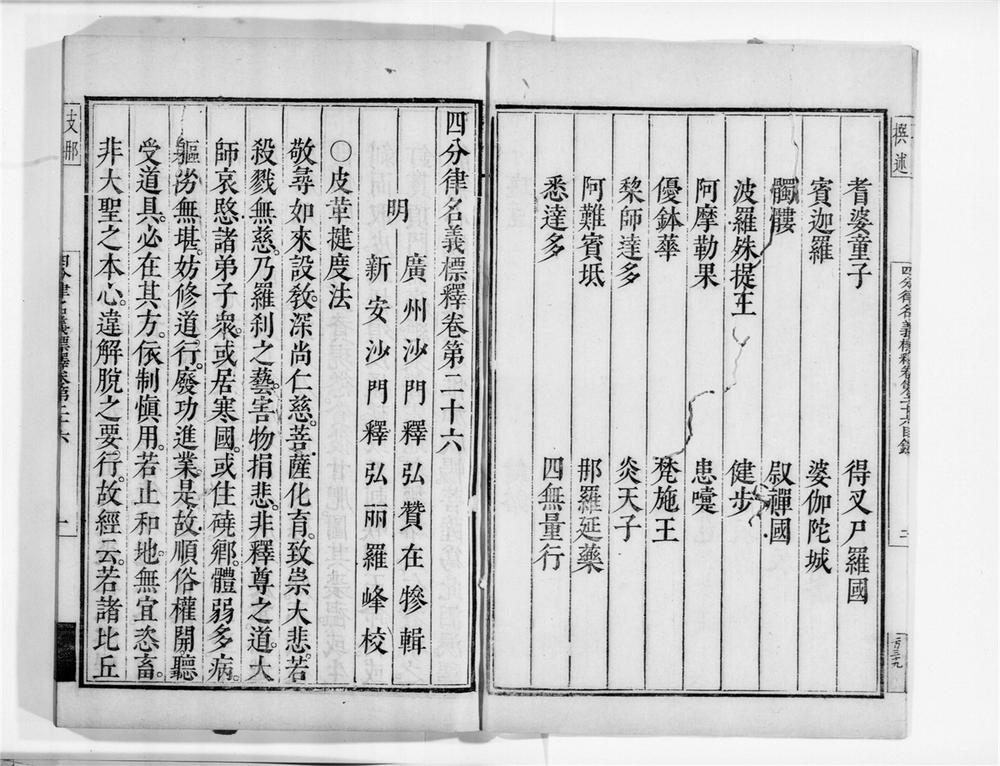 撰述
四分律名義標釋卷第二十六目錄
耆婆童子 得叉尸羅國
賓迦羅 婆伽陀城
髑髏 叔禪國
波羅殊提王 健步
阿摩勒果 患嚏
優鉢華 梵施王
棃師達多 炎天子
阿難賓坻 那羅延藥
悉達多 四無量行
四分律名義標釋卷第二十六
明 廣州沙門釋弘贊在犙輯
新安沙門釋弘麗羅峰校
○皮革揵度法
敬尋如來設敎。深尚仁慈。菩薩化育。致崇大悲。若
殺戮無慈。乃羅刹之藝。害物捐悲。非釋尊之道。大
師哀愍諸弟子衆。或居寒國。或住磽鄉。體弱多病。
軀劣無堪。妨修道行。廢功進業。是故順俗權開聽
受道具。必在其方。依制愼用。若止和地。無宜恣畜。
非大聖之本心。違解脫之要行。故經云。若諸比丘
支那
四分律名義標釋卷第二十六
一